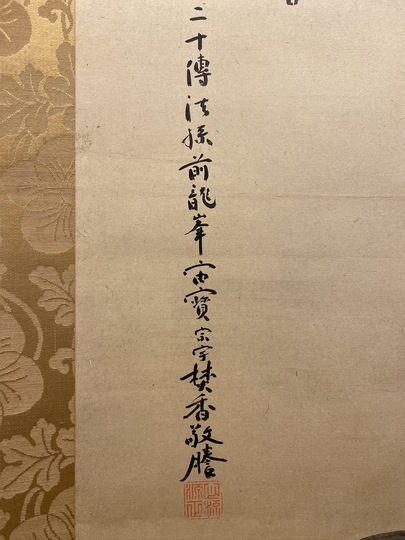 二十傳法孫前龍峯宙寶宗宇焚香敬謄